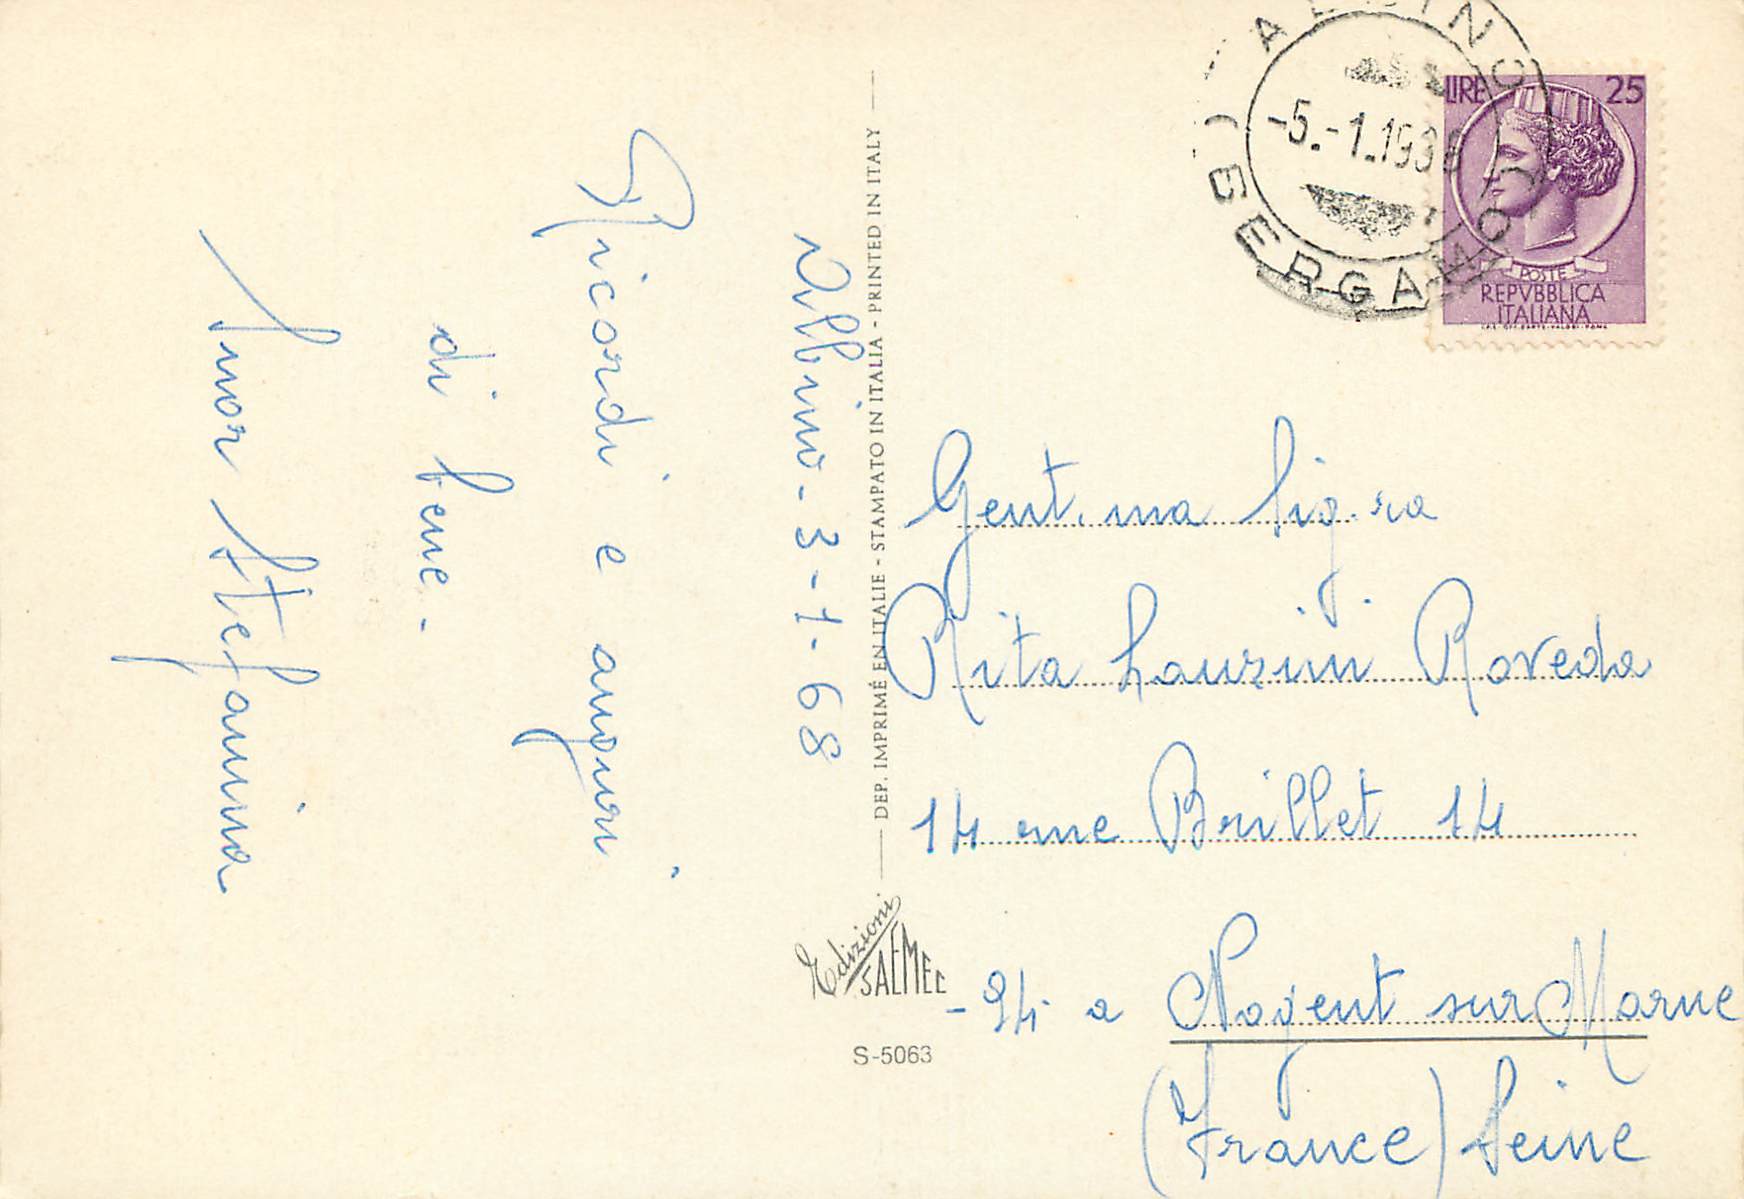 Albino - 3-1-68
Ricordi e auguri
di bene -
Suor Stefanina
DEP. IMPRIMÉ EN ITALIE - STAMPATO IN ITALIA - PRINTED IN ITALY
Edizioni
SAEMEC
S-5063
ALBINO
-5.-1.196
(BERGAMO)
LIRE 25
POSTE
REPVBBLICA
ITALIANA
I.P.S. OFF. CARTE-VALORI-ROMA
Gent.ma Sig.ra
Rita Lanzini Roveda
14 rue Brillet 14
- 94 a Nogent sur Marne
(France) Seine